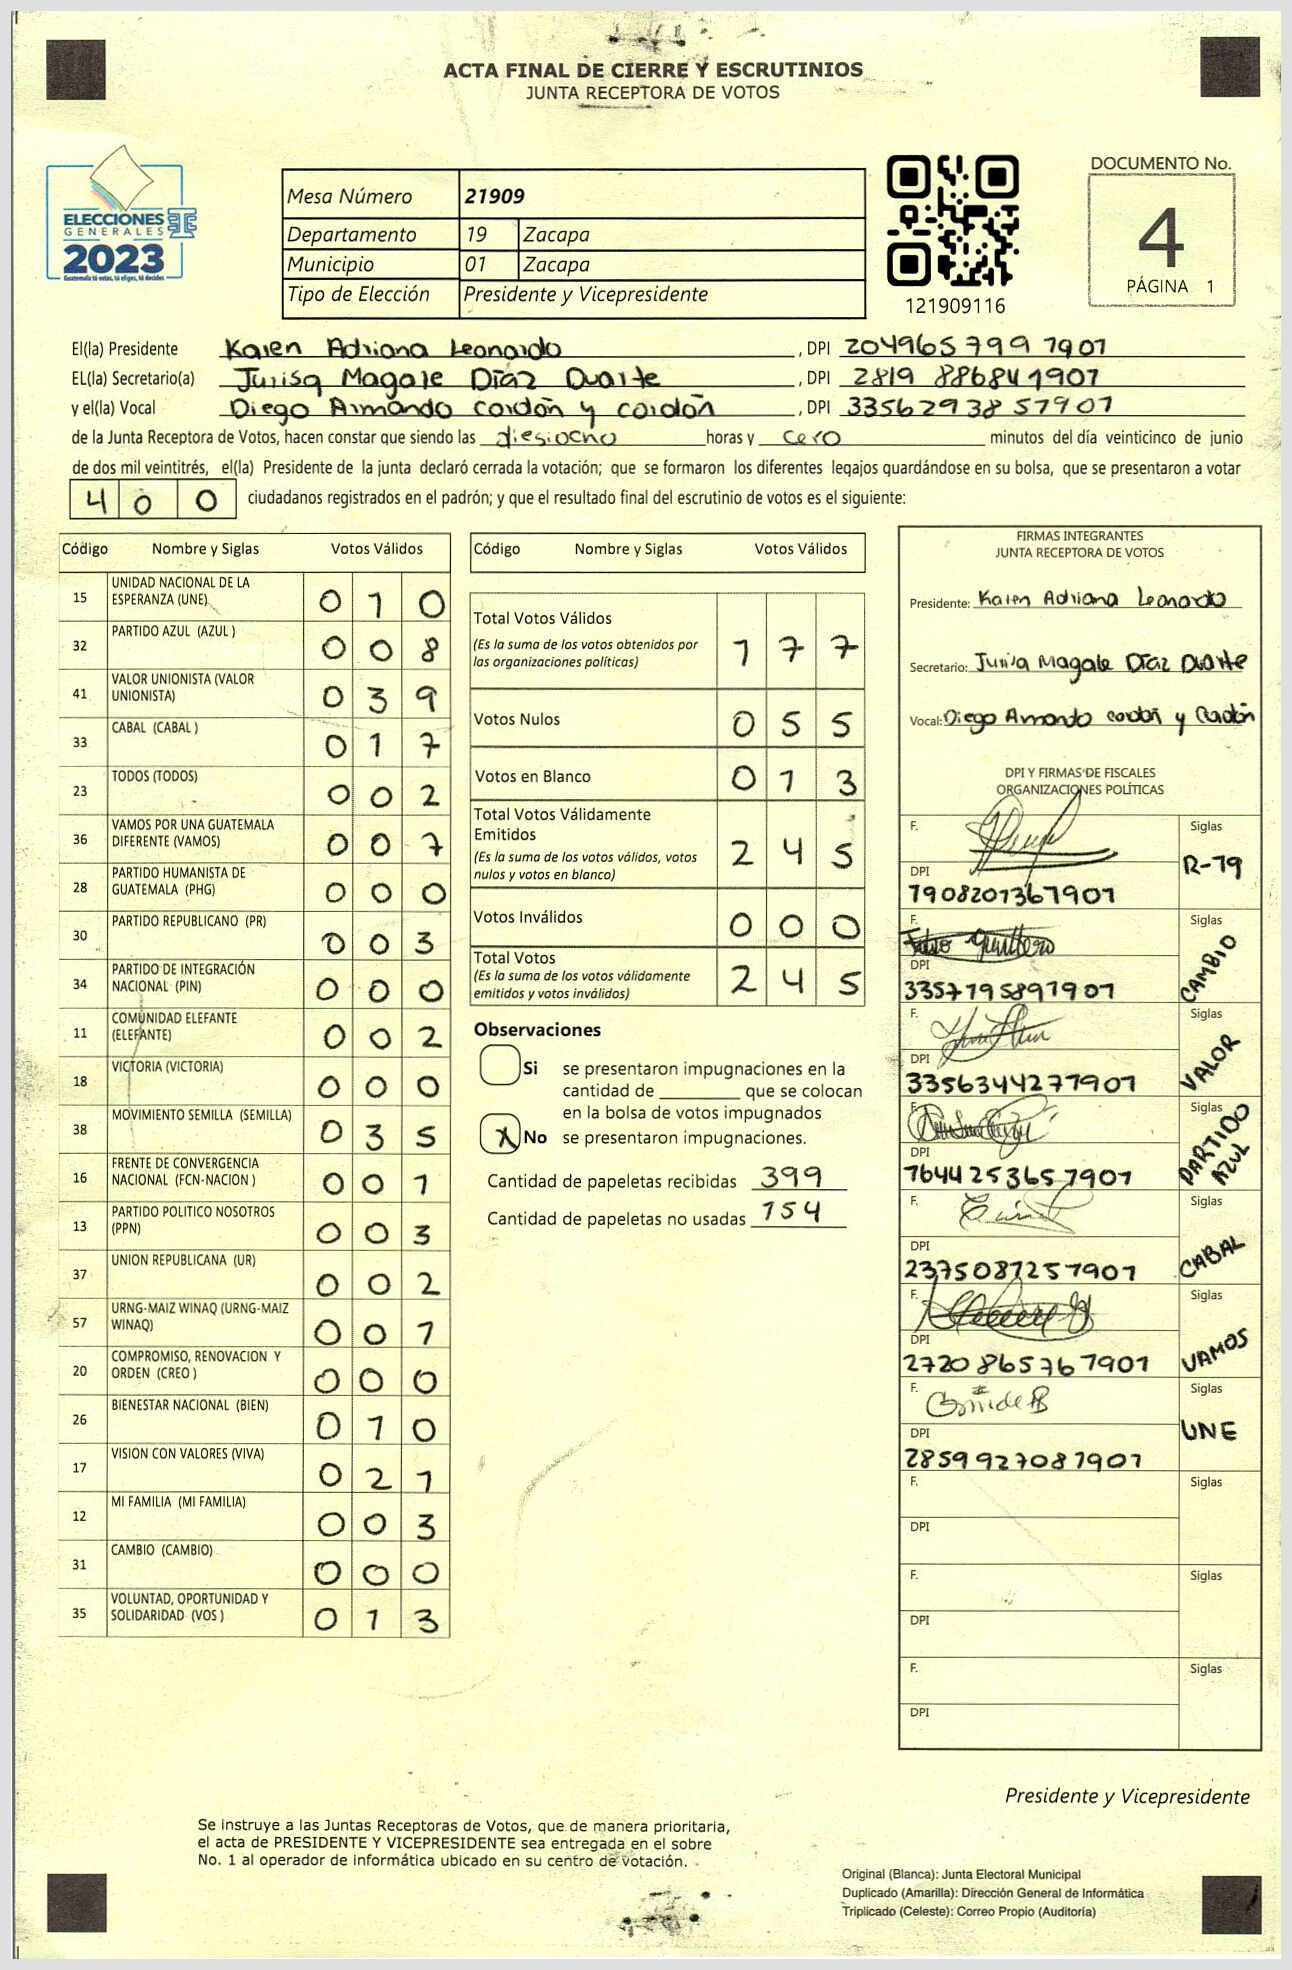 ACTA FINAL DE CIERRE Y ESCRUTINIOS
JUNTA RECEPTORA DE VOTOS
ELECCIONES
GENERALES
2023
Guatemala tú votas, tú eliges, tú decides
Mesa Número 21909
Departamento 19 Zacapa
Municipio 01 Zacapa
Tipo de Elección Presidente y Vicepresidente
121909116
DOCUMENTO No.
4
PÁGINA 1
El(la) Presidente Karen Adriana Leonardo , DPI 2049657997901
EL(la) Secretario(a) Jurisa Magale Díaz Duarte , DPI 2819 886841907
y el(la) Vocal Diego Armando cordón y cordón , DPI 3356293857901
de la Junta Receptora de Votos, hacen constar que siendo las diesiocho horas y cero minutos del día veinticinco de junio
de dos mil veintitrés, el(la) Presidente de la junta declaró cerrada la votación; que se formaron los diferentes legajos guardándose en su bolsa, que se presentaron a votar
400 ciudadanos registrados en el padrón; y que el resultado final del escrutinio de votos es el siguiente:
Código Nombre y Siglas Votos Válidos
15 UNIDAD NACIONAL DE LA ESPERANZA (UNE) 0 1 0
32 PARTIDO AZUL (AZUL ) 0 0 8
41 VALOR UNIONISTA (VALOR UNIONISTA) 0 3 9
33 CABAL (CABAL ) 0 1 7
23 TODOS (TODOS) 0 0 2
36 VAMOS POR UNA GUATEMALA DIFERENTE (VAMOS) 0 0 7
28 PARTIDO HUMANISTA DE GUATEMALA (PHG) 0 0 0
30 PARTIDO REPUBLICANO (PR) 0 0 3
34 PARTIDO DE INTEGRACIÓN NACIONAL (PIN) 0 0 0
11 COMUNIDAD ELEFANTE (ELEFANTE) 0 0 2
18 VICTORIA (VICTORIA) 0 0 0
38 MOVIMIENTO SEMILLA (SEMILLA) 0 3 5
16 FRENTE DE CONVERGENCIA NACIONAL (FCN-NACION ) 0 0 1
13 PARTIDO POLITICO NOSOTROS (PPN) 0 0 3
37 UNION REPUBLICANA (UR) 0 0 2
57 URNG-MAIZ WINAQ (URNG-MAIZ WINAQ) 0 0 1
20 COMPROMISO, RENOVACION Y ORDEN (CREO ) 0 0 0
26 BIENESTAR NACIONAL (BIEN) 0 1 0
17 VISION CON VALORES (VIVA) 0 2 1
12 MI FAMILIA (MI FAMILIA) 0 0 3
31 CAMBIO (CAMBIO) 0 0 0
35 VOLUNTAD, OPORTUNIDAD Y SOLIDARIDAD (VOS ) 0 1 3
Código Nombre y Siglas Votos Válidos
Total Votos Válidos
(Es la suma de los votos obtenidos por
las organizaciones políticas) 1 7 7
Votos Nulos 0 5 5
Votos en Blanco 0 1 3
Total Votos Válidamente
Emitidos
(Es la suma de los votos válidos, votos
nulos y votos en blanco) 2 4 5
Votos Inválidos 0 0 0
Total Votos
(Es la suma de los votos válidamente
emitidos y votos inválidos) 2 4 5
Observaciones
Si se presentaron impugnaciones en la
cantidad de ________ que se colocan
en la bolsa de votos impugnados
X No se presentaron impugnaciones.
Cantidad de papeletas recibidas 399
Cantidad de papeletas no usadas 154
FIRMAS INTEGRANTES
JUNTA RECEPTORA DE VOTOS
Presidente: Karen Adriana Leonardo
Secretario: Jurisa Magale Díaz Duarte
Vocal: Diego Armando cordón y Cordón
DPI Y FIRMAS DE FISCALES
ORGANIZACIONES POLÍTICAS
F. Siglas
DPI R-79
1908201367901
F. Siglas
DPI CAMBIO
3357195891901
F. Siglas
DPI VALOR
3356344277901
F. Siglas
DPI PARTIDO AZUL
1644253657901
F. Siglas
DPI CABAL
2375087257901
F. Siglas
DPI VAMOS
2720865767901
F. Siglas
DPI UNE
2859927087901
F. Siglas
DPI
F. Siglas
DPI
F. Siglas
DPI
Presidente y Vicepresidente
Se instruye a las Juntas Receptoras de Votos, que de manera prioritaria,
el acta de PRESIDENTE Y VICEPRESIDENTE sea entregada en el sobre
No. 1 al operador de informática ubicado en su centro de votación.
Original (Blanca): Junta Electoral Municipal
Duplicado (Amarilla): Dirección General de Informática
Triplicado (Celeste): Correo Propio (Auditoría)